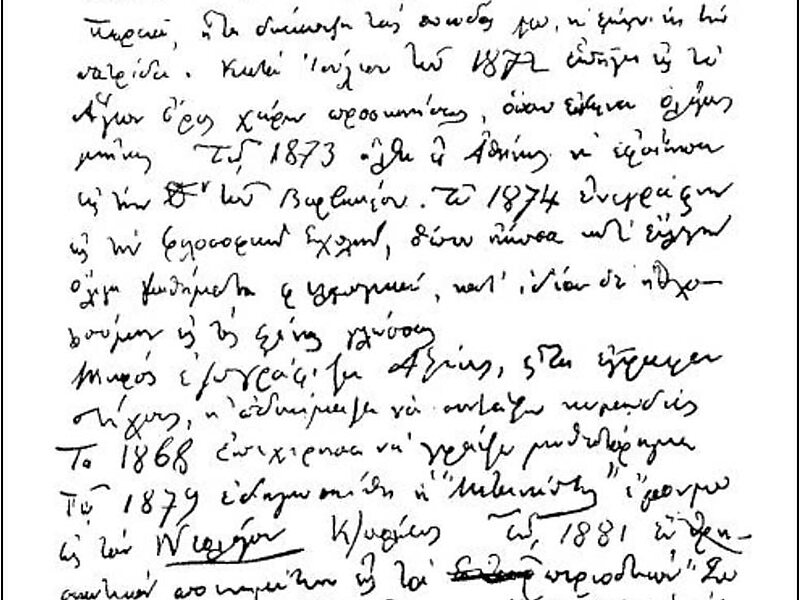 Πειραιᾶ, εἶτα διέκοψα τὰς σπουδάς μου, κ' ἔμεινα εἰς τὴν
πατρίδα. Κατὰ Ἰούλιον τοῦ 1872 ὑπῆγα εἰς τὸ
Ἅγιον Ὄρος χάριν προσκυνήσεως, ὅπου ἔμεινα ὀλίγους
μῆνας. Τῷ 1873 ἦλθα εἰς Ἀθήνας κ' ἐφοίτησα
εἰς τὴν Δ' τοῦ Βαρβακείου. Τῷ 1874 ἐνεγράφην
εἰς τὴν φιλοσοφικὴν Σχολήν, ὅπου ἤκουα κατ' ἐκλογὴν
ὀλίγα μαθήματα φιλολογικά, κατ' ἰδίαν δὲ ἠσχο-
λούμην εἰς τὰς ξένας γλώσσας
Μικρὸς ἐζωγράφιζα Ἁγίους, εἶτα ἔγραφα
στίχους, κ' ἐδοκίμαζα νὰ συντάξω κωμῳδίας
Τῷ 1868 ἐπεχείρησα νὰ γράψω μυθιστόρημα
Τῷ 1879 ἐδημοσιεύθη ἡ "Μετανάστις" ἔργον μου
εἰς τὸν Νεολόγον Κ/πόλεως Τῷ 1881 ἓν θρη-
σκευτικὸν ποιημάτιον εἰς τὸ περιοδικὸν "Σω